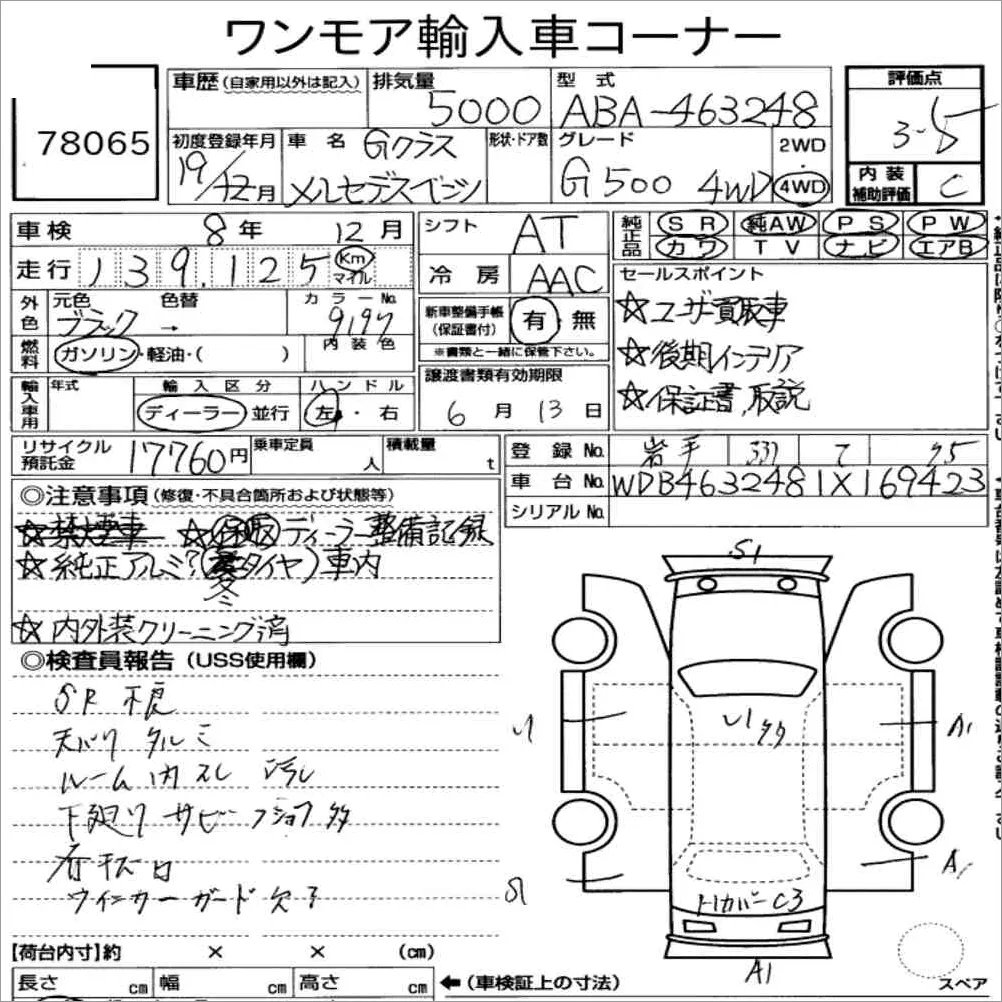 ワンモア輸入車コーナー
78065
車歴(自家用以外は記入)
排気量 5000
型式 ABA-463248
評価点 3.5
初度登録年月 19/12月
車名 Gクラス
メルセデスベンツ
形状・ドア数
グレード G500 4WD
2WD
4WD
内装補助評価 C
車検 8年 12月
走行 139,125 Km マイル
シフト AT
冷房 AAC
純正品 SR 純AW PS PW
カワ TV ナビ エアB
外色 元色 ブラック 色替 → カラーNo. 9197
内装色
燃料 ガソリン・軽油・( )
新車整備手帳(保証書付) 有・無
※書類と一緒に保管下さい。
セールスポイント
☆ユーザー買取車
☆後期インテリア
☆保証書、取説
輸入車用 年式 輸入区分 ディーラー 並行 ハンドル 左・右
譲渡書類有効期限
6月13日
リサイクル預託金 17760円
乗車定員 人
積載量 t
登録No. 岩手 331 て 75
車台No. WDB4632481X169423
シリアルNo.
◎注意事項(修復・不具合箇所および状態等)
☆保取 ディーラー整備記録
☆純正アルミ?(冬タイヤ)車内
☆内外装クリーニング済
◎検査員報告(USS使用欄)
SR 不良
天バリ タルミ
ルーム内 スレ 汚れ
下廻り サビ
ウインカーガード 欠
S1
U1
A1
A1
トノカバー C3
A1
スペア
【荷台内寸】約 × × (cm)
長さ cm 幅 cm 高さ cm
←(車検証上の寸法)